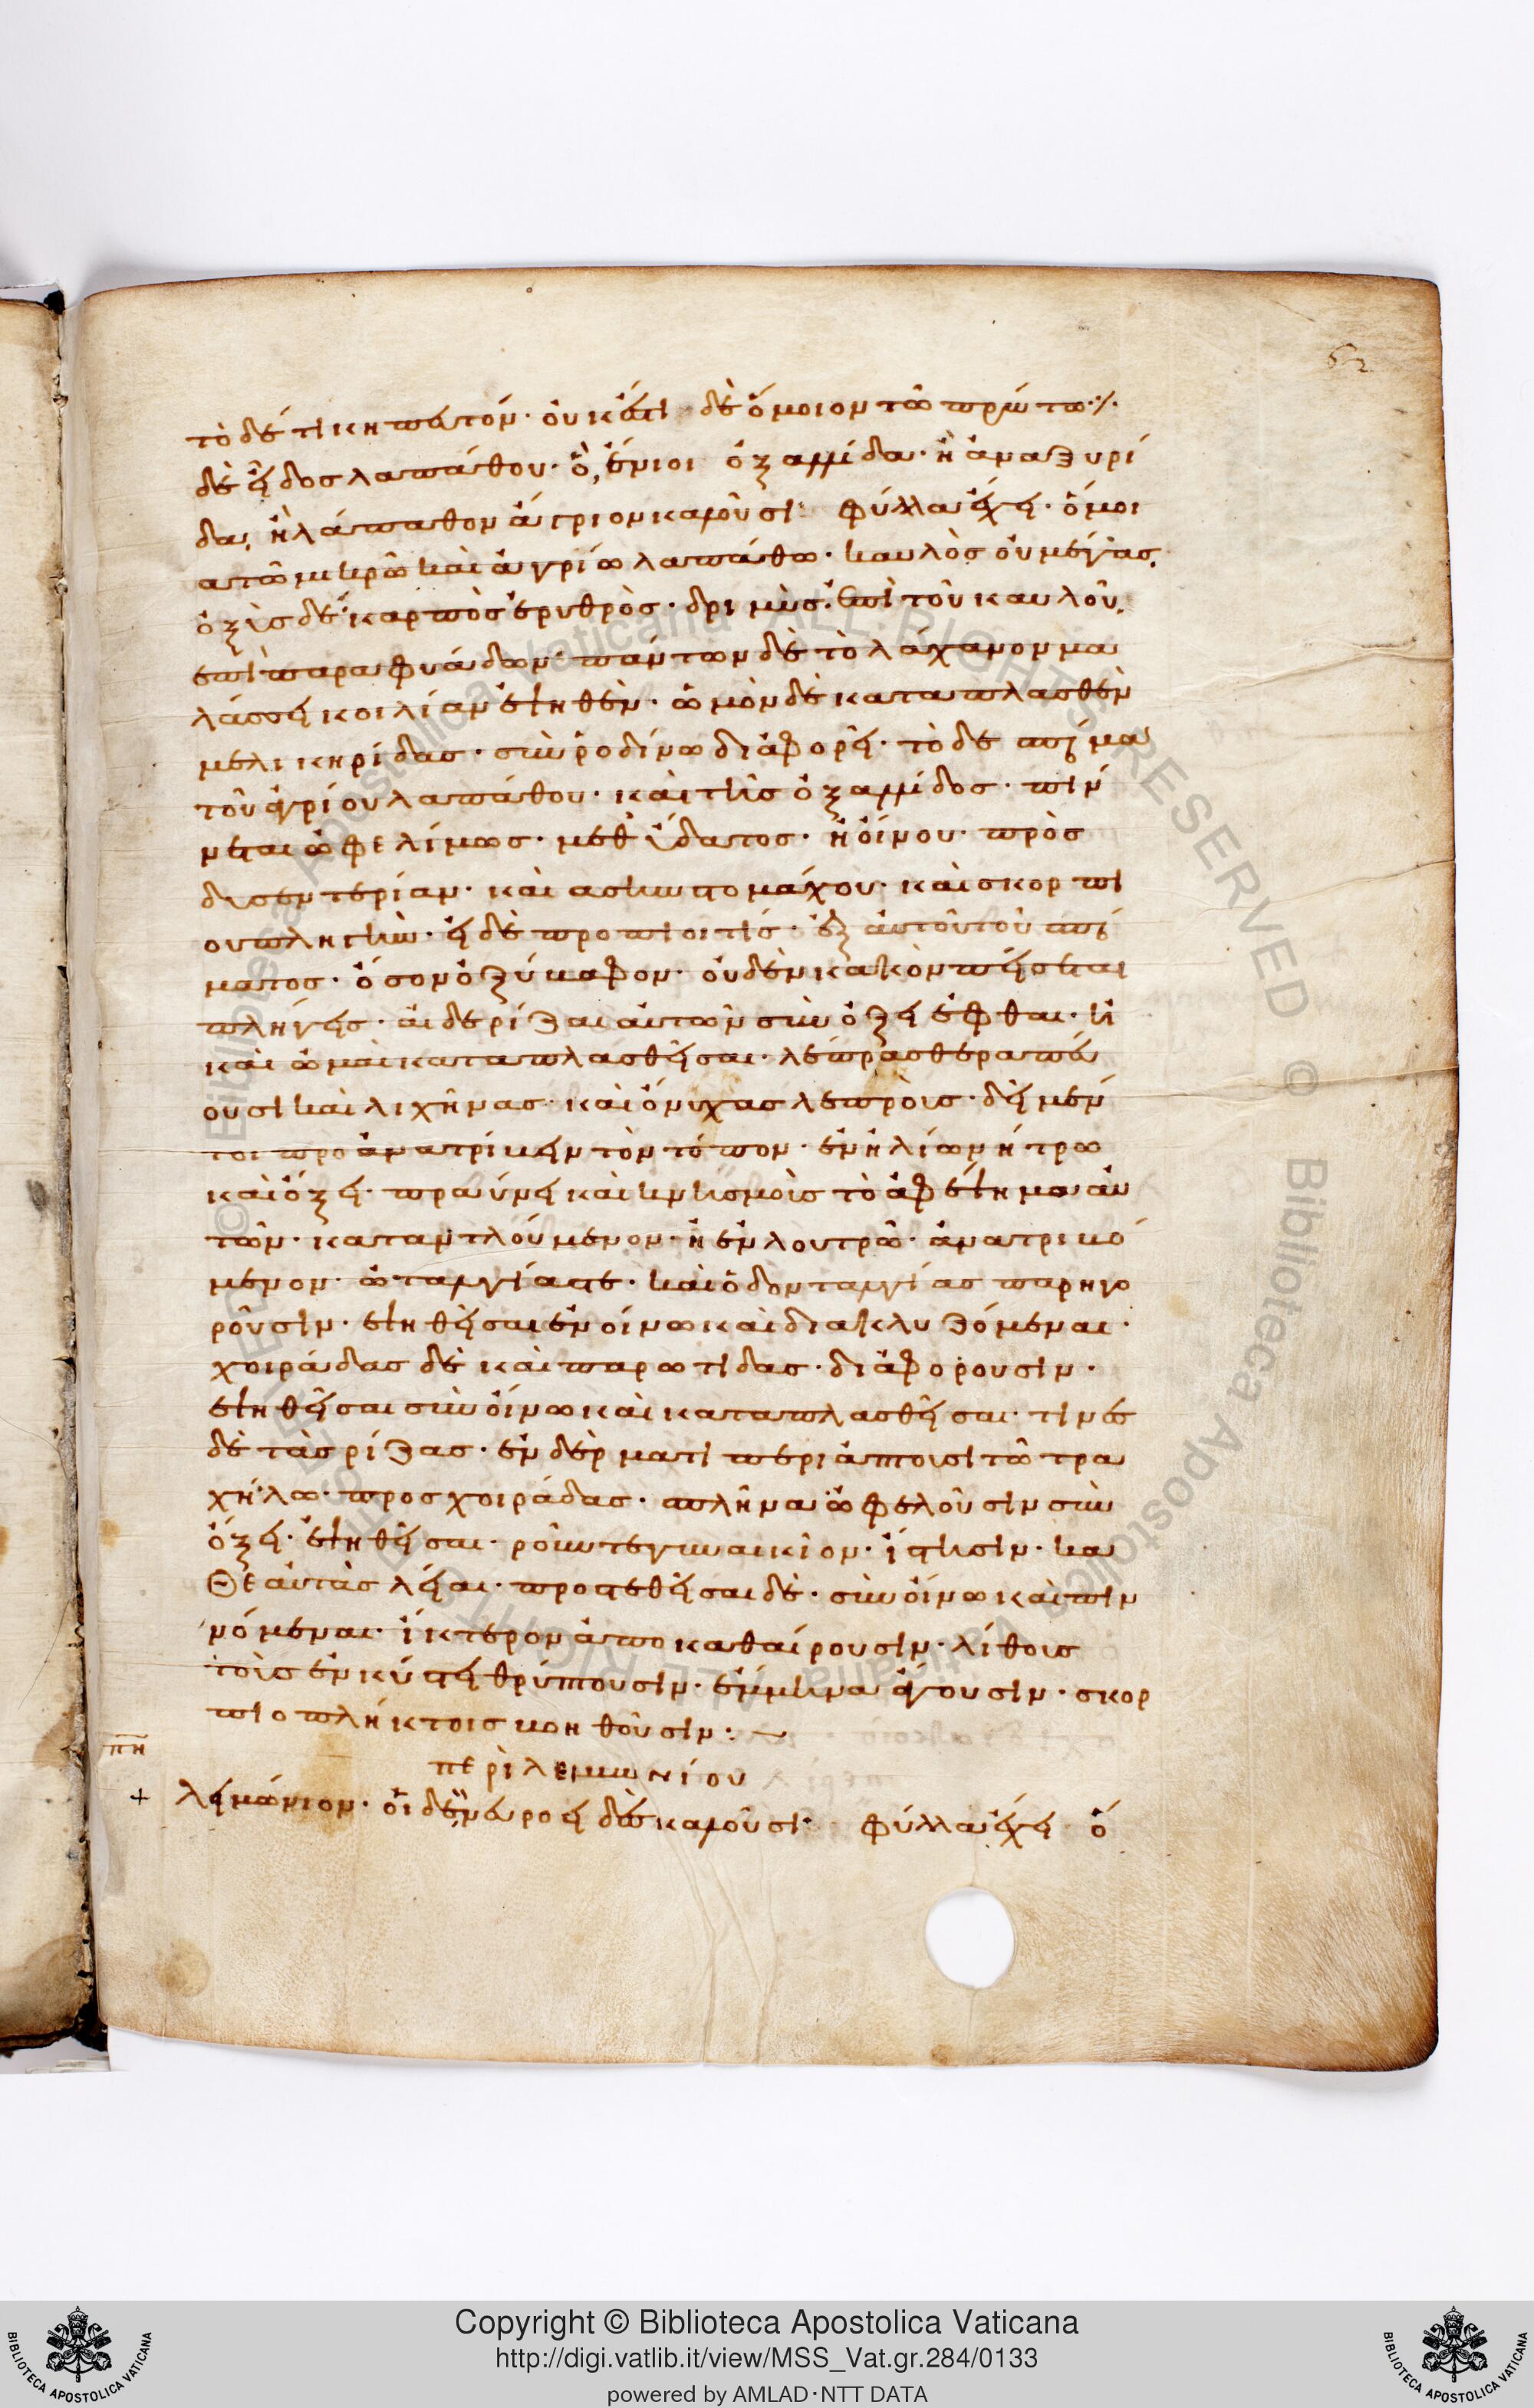 62
τὸ δέ τι κηπευτόν· οὐκέτι δὲ ὅμοιον τῶ πρώτω·/·
δὲ εἶδος λαπάθου· ὃ, ἔνιοι ὀξαλλίδα· ἢ ἀναξυρί
δα, ἢ λάπαθον ἄγριον καλοῦσι· φύλλα ἔχει· ὅμοι
α τῶ μικρῶ καὶ ἀγρίω λαπάθω· καυλὸς οὐ μέγας,
ὀξὺς δὲ καρπὸς ἐρυθρὸς· δριμὺς· ἐπὶ τοῦ καυλοῦ,
ἐπὶ παραφυάδων· πάντων δὲ τὸ λάχανον μα
λάσσει κοιλίαν ἑψηθὲν· ὠμὸν δὲ καταπλασθὲν
μελικηρίδας· σὺν ῥοδίνω διαφορεῖ· τὸ δὲ σπέρμα
τοῦ ἀγρίου λαπάθου· καὶ τῆς ὀξαλλίδος· πίν
νεται ὠφελίμως· μεθ' ὕδατος· ἢ οἴνου· πρὸς
δυσεντερίαν· καὶ ἄσην στομάχου· καὶ σκορπί
ου πληγὴν· εἰ δὲ προπίοι τίς· ἐξ αὐτοῦ τοῦ σπέρ
ματος· ὅσον ὀξύβαφον· οὐδὲν κακὸν πείσεται
πληγεὶς· αἱ δὲ ῥίζαι αὐτῶν σὺν ὄξει ἑφθαι· ἢ
καὶ ὠμαὶ καταπλασθεῖσαι· λέπρας θεραπεύ
ουσι καὶ λιχῆνας· καὶ ὄνυχας λεπροὺς· δεῖ μέν
τοι προανατρίβειν τὸν τόπον· ἐν ἡλίω νήτρω
καὶ ὄξει· πραΰνει καὶ κνησμοὺς τὸ ἀφέψημα αὐ
τῶν· καταντλούμενον· ἢ ἐν λουτρῶ· ἀνατριβό
μενον· ὠταλγίας τε· καὶ ὀδονταλγίας παρηγο
ροῦσιν· ἑψηθεῖσαι ἐν οἴνω καὶ διακλυζόμεναι·
χοιράδας δὲ καὶ παρωτίδας· διαφοροῦσιν·
ἑψηθεῖσαι σὺν οἴνω καὶ καταπλασθεῖσαι· τινὲς
δὲ τὰς ῥίζας· ἐν δέρματι περιάπτουσι τῶ τρα
χήλω· προς χοιράδας· σπλῆνα ὠφελοῦσιν σὺν
ὄξει· ἑψηθεῖσαι· ῥοῦν τε γυναικῖον· ἵστησιν· κα
θ' ἑαυτὰς λεῖαι· προστεθεῖσαι δὲ· σὺν οἴνω καὶ πιν
νόμεναι· ἴκτερον ἀποκαθαίρουσιν· λίθους
τοὺς ἐν κύστει θρύπτουσιν· ἔμμηνα ἄγουσιν· σκορ
πιοπλήκτοις βοηθοῦσιν :~
πη
περὶ λειμωνίου
+ λειμώνιον· οἱ δὲ, νευροειδὲς καλοῦσι· φύλλα ἔχει ὅ
Copyright © Biblioteca Apostolica Vaticana
http://digi.vatlib.it/view/MSS_Vat.gr.284/0133
powered by AMLAD·NTT DATA